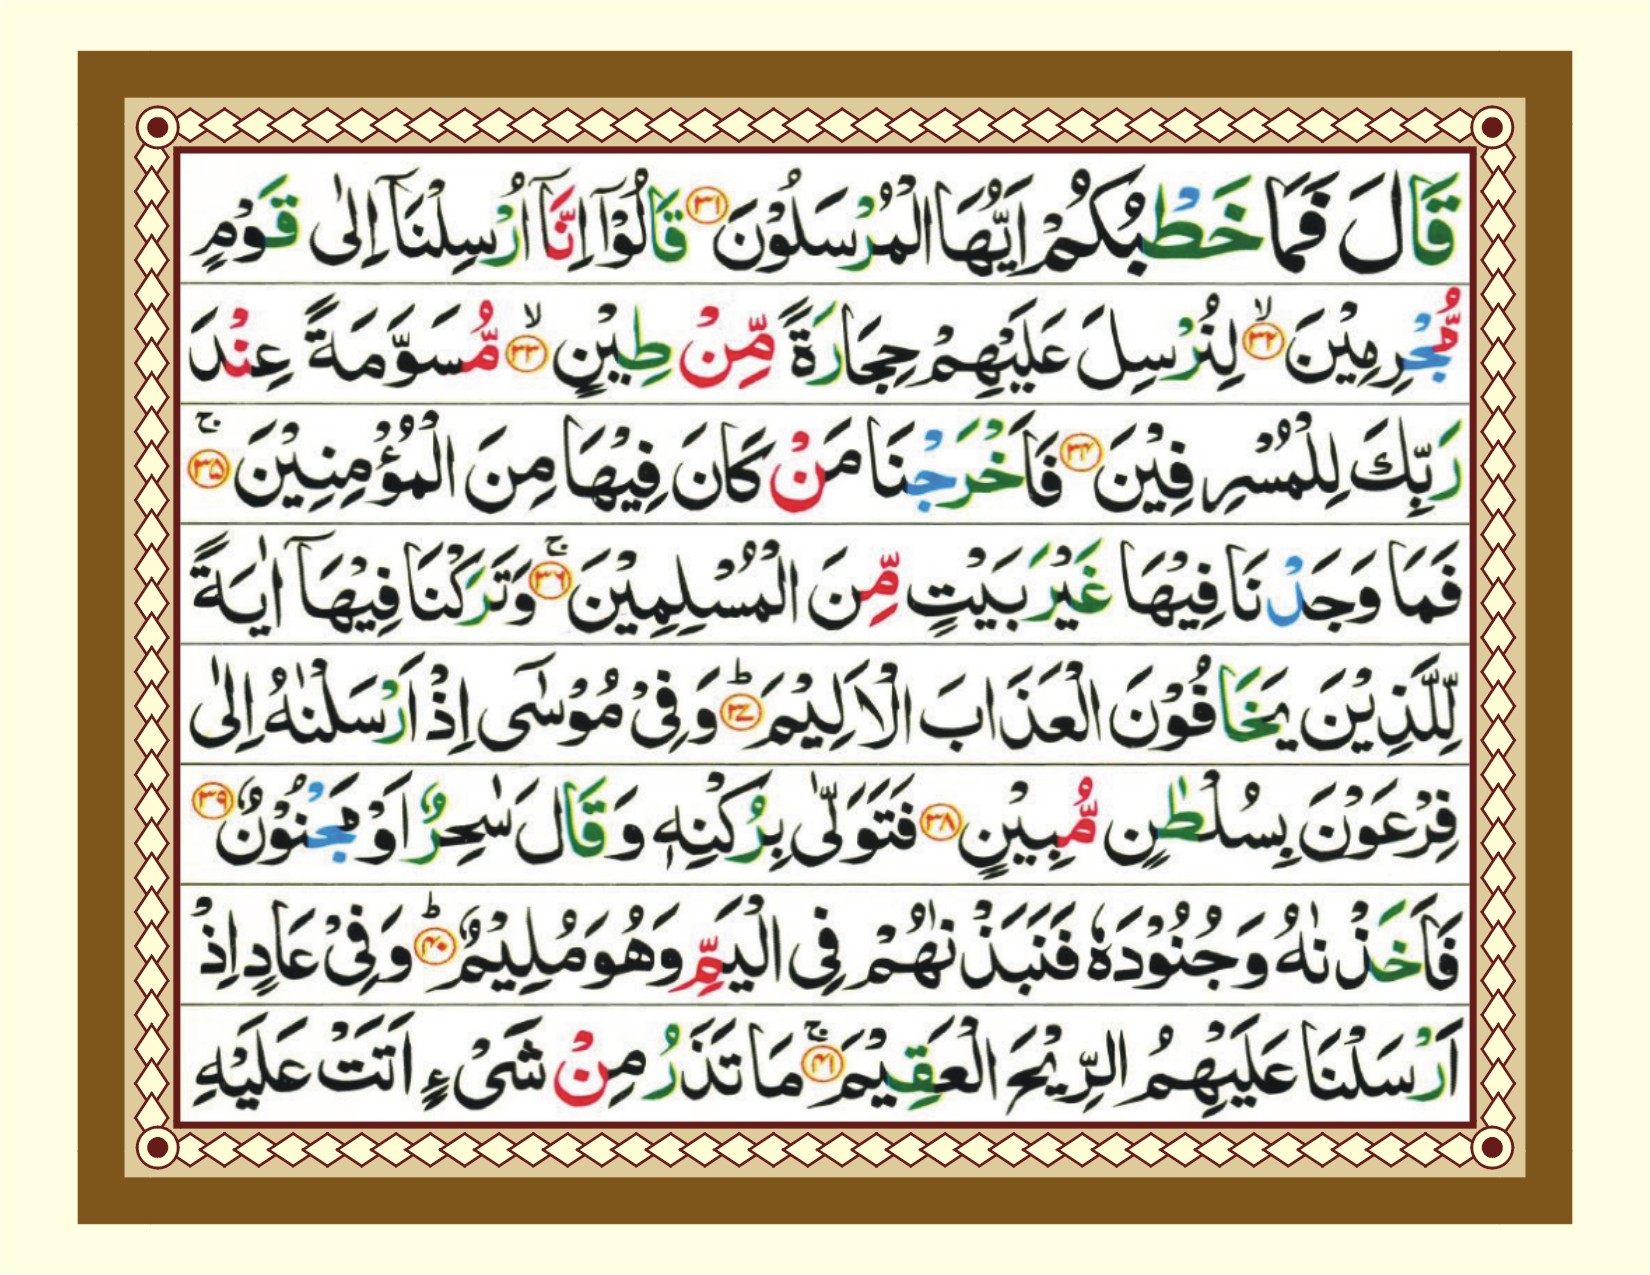 قَالَ فَمَا خَطْبُكُمْ اَيُّهَا الْمُرْسَلُوْنَ ﴿۳۱﴾ قَالُوْۤا اِنَّاۤ اُرْسِلْنَاۤ اِلٰى قَوْمٍ
مُّجْرِمِيْنَ ۙ﴿۳۲﴾ لِنُرْسِلَ عَلَيْهِمْ حِجَارَةً مِّنْ طِيْنٍ ۙ﴿۳۳﴾ مُّسَوَّمَةً عِنْدَ
رَبِّكَ لِلْمُسْرِفِيْنَ ﴿۳۴﴾ فَاَخْرَجْنَا مَنْ كَانَ فِيْهَا مِنَ الْمُؤْمِنِيْنَ ۚ﴿۳۵﴾
فَمَا وَجَدْنَا فِيْهَا غَيْرَ بَيْتٍ مِّنَ الْمُسْلِمِيْنَ ۚ﴿۳۶﴾ وَتَرَكْنَا فِيْهَاۤ اٰيَةً
لِّلَّذِيْنَ يَخَافُوْنَ الْعَذَابَ الْاَلِيْمَ ؕ﴿۳۷﴾ وَفِيْ مُوْسٰۤى اِذْ اَرْسَلْنٰهُ اِلٰى
فِرْعَوْنَ بِسُلْطٰنٍ مُّبِيْنٍ ﴿۳۸﴾ فَتَوَلّٰى بِرُكْنِهٖ وَقَالَ سٰحِرٌ اَوْ مَجْنُوْنٌ ﴿۳۹﴾
فَاَخَذْنٰهُ وَجُنُوْدَهٗ فَنَبَذْنٰهُمْ فِى الْيَمِّ وَهُوَ مُلِيْمٌ ؕ﴿۴۰﴾ وَفِيْ عَادٍ اِذْ
اَرْسَلْنَا عَلَيْهِمُ الرِّيْحَ الْعَقِيْمَ ۚ﴿۴۱﴾ مَا تَذَرُ مِنْ شَىْءٍ اَتَتْ عَلَيْهِ